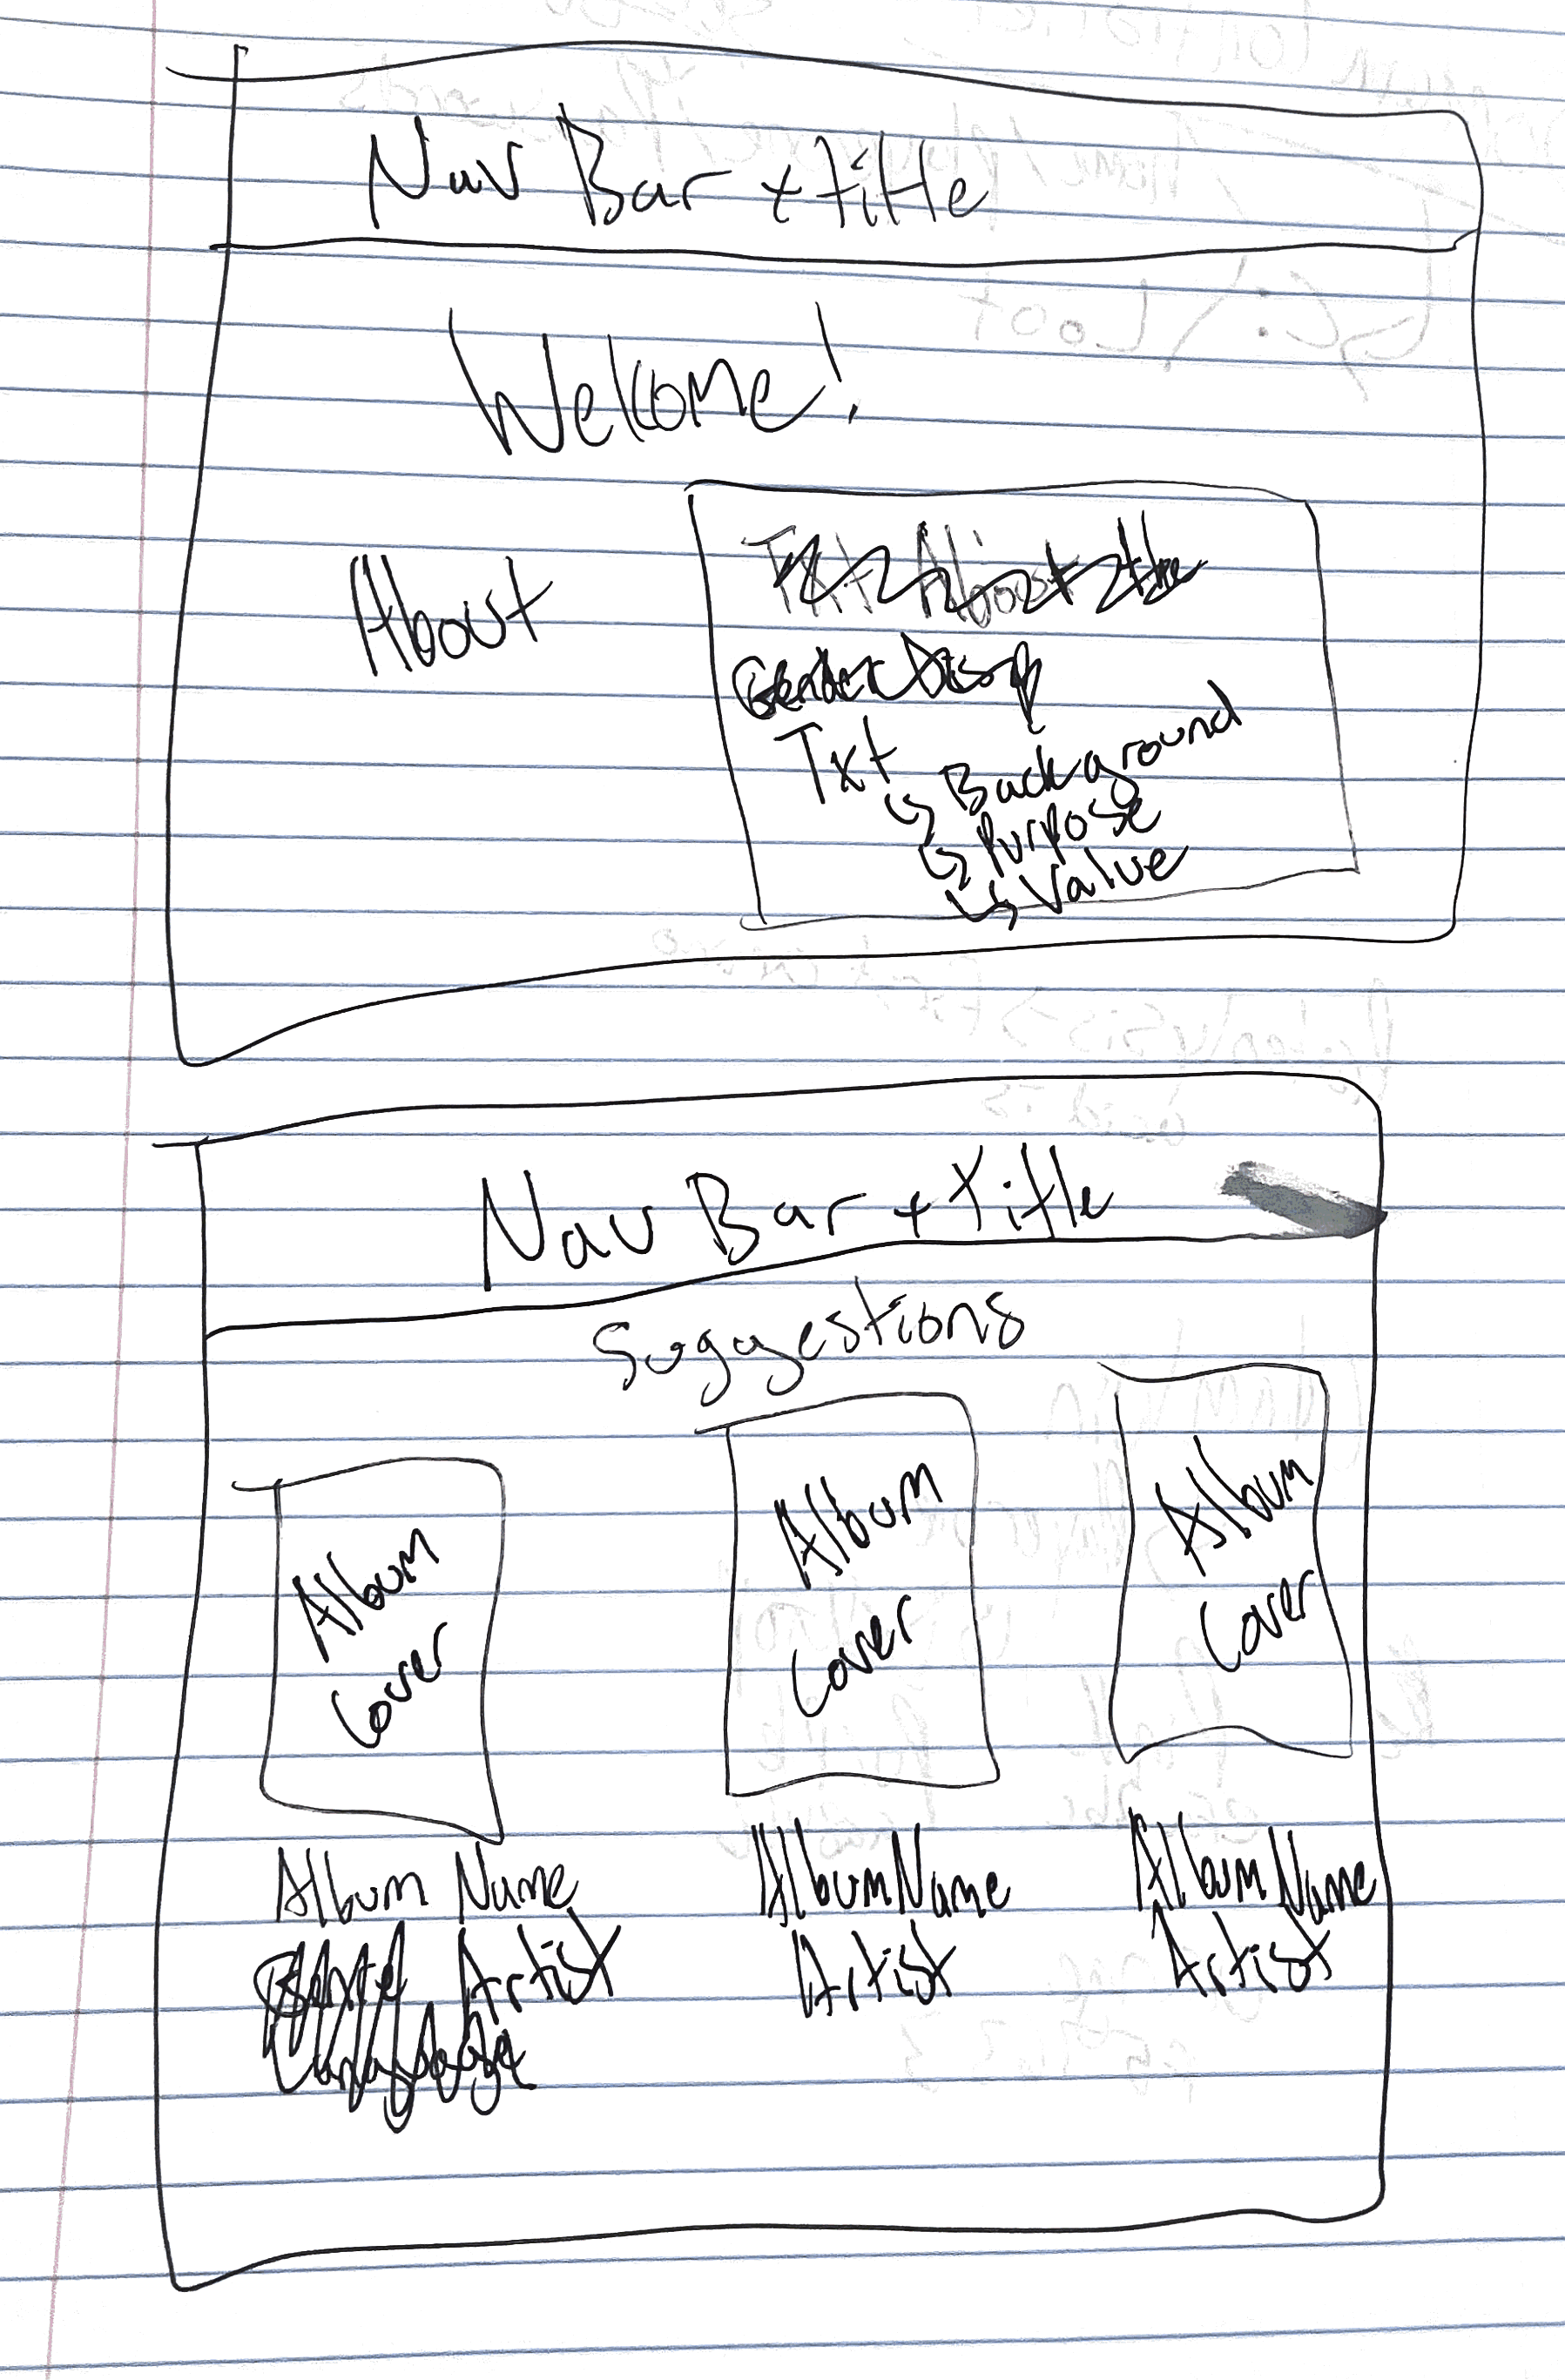 Nav Bar + title
Welcome!
About
Txt
↳ Background
↳ Purpose
↳ Value
Nav Bar + Title
Suggestions
Album
Cover
Album
Cover
Album
Cover
Album Name
Artist
Album Name
Artist
Album Name
Artist